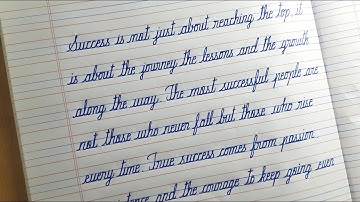 Success is not just about reaching the top, it
is about the journey the lessons and the growth
along the way. The most successful people are
not those who never fall but those who rise
every time. True success comes from passion
and the courage to keep going even